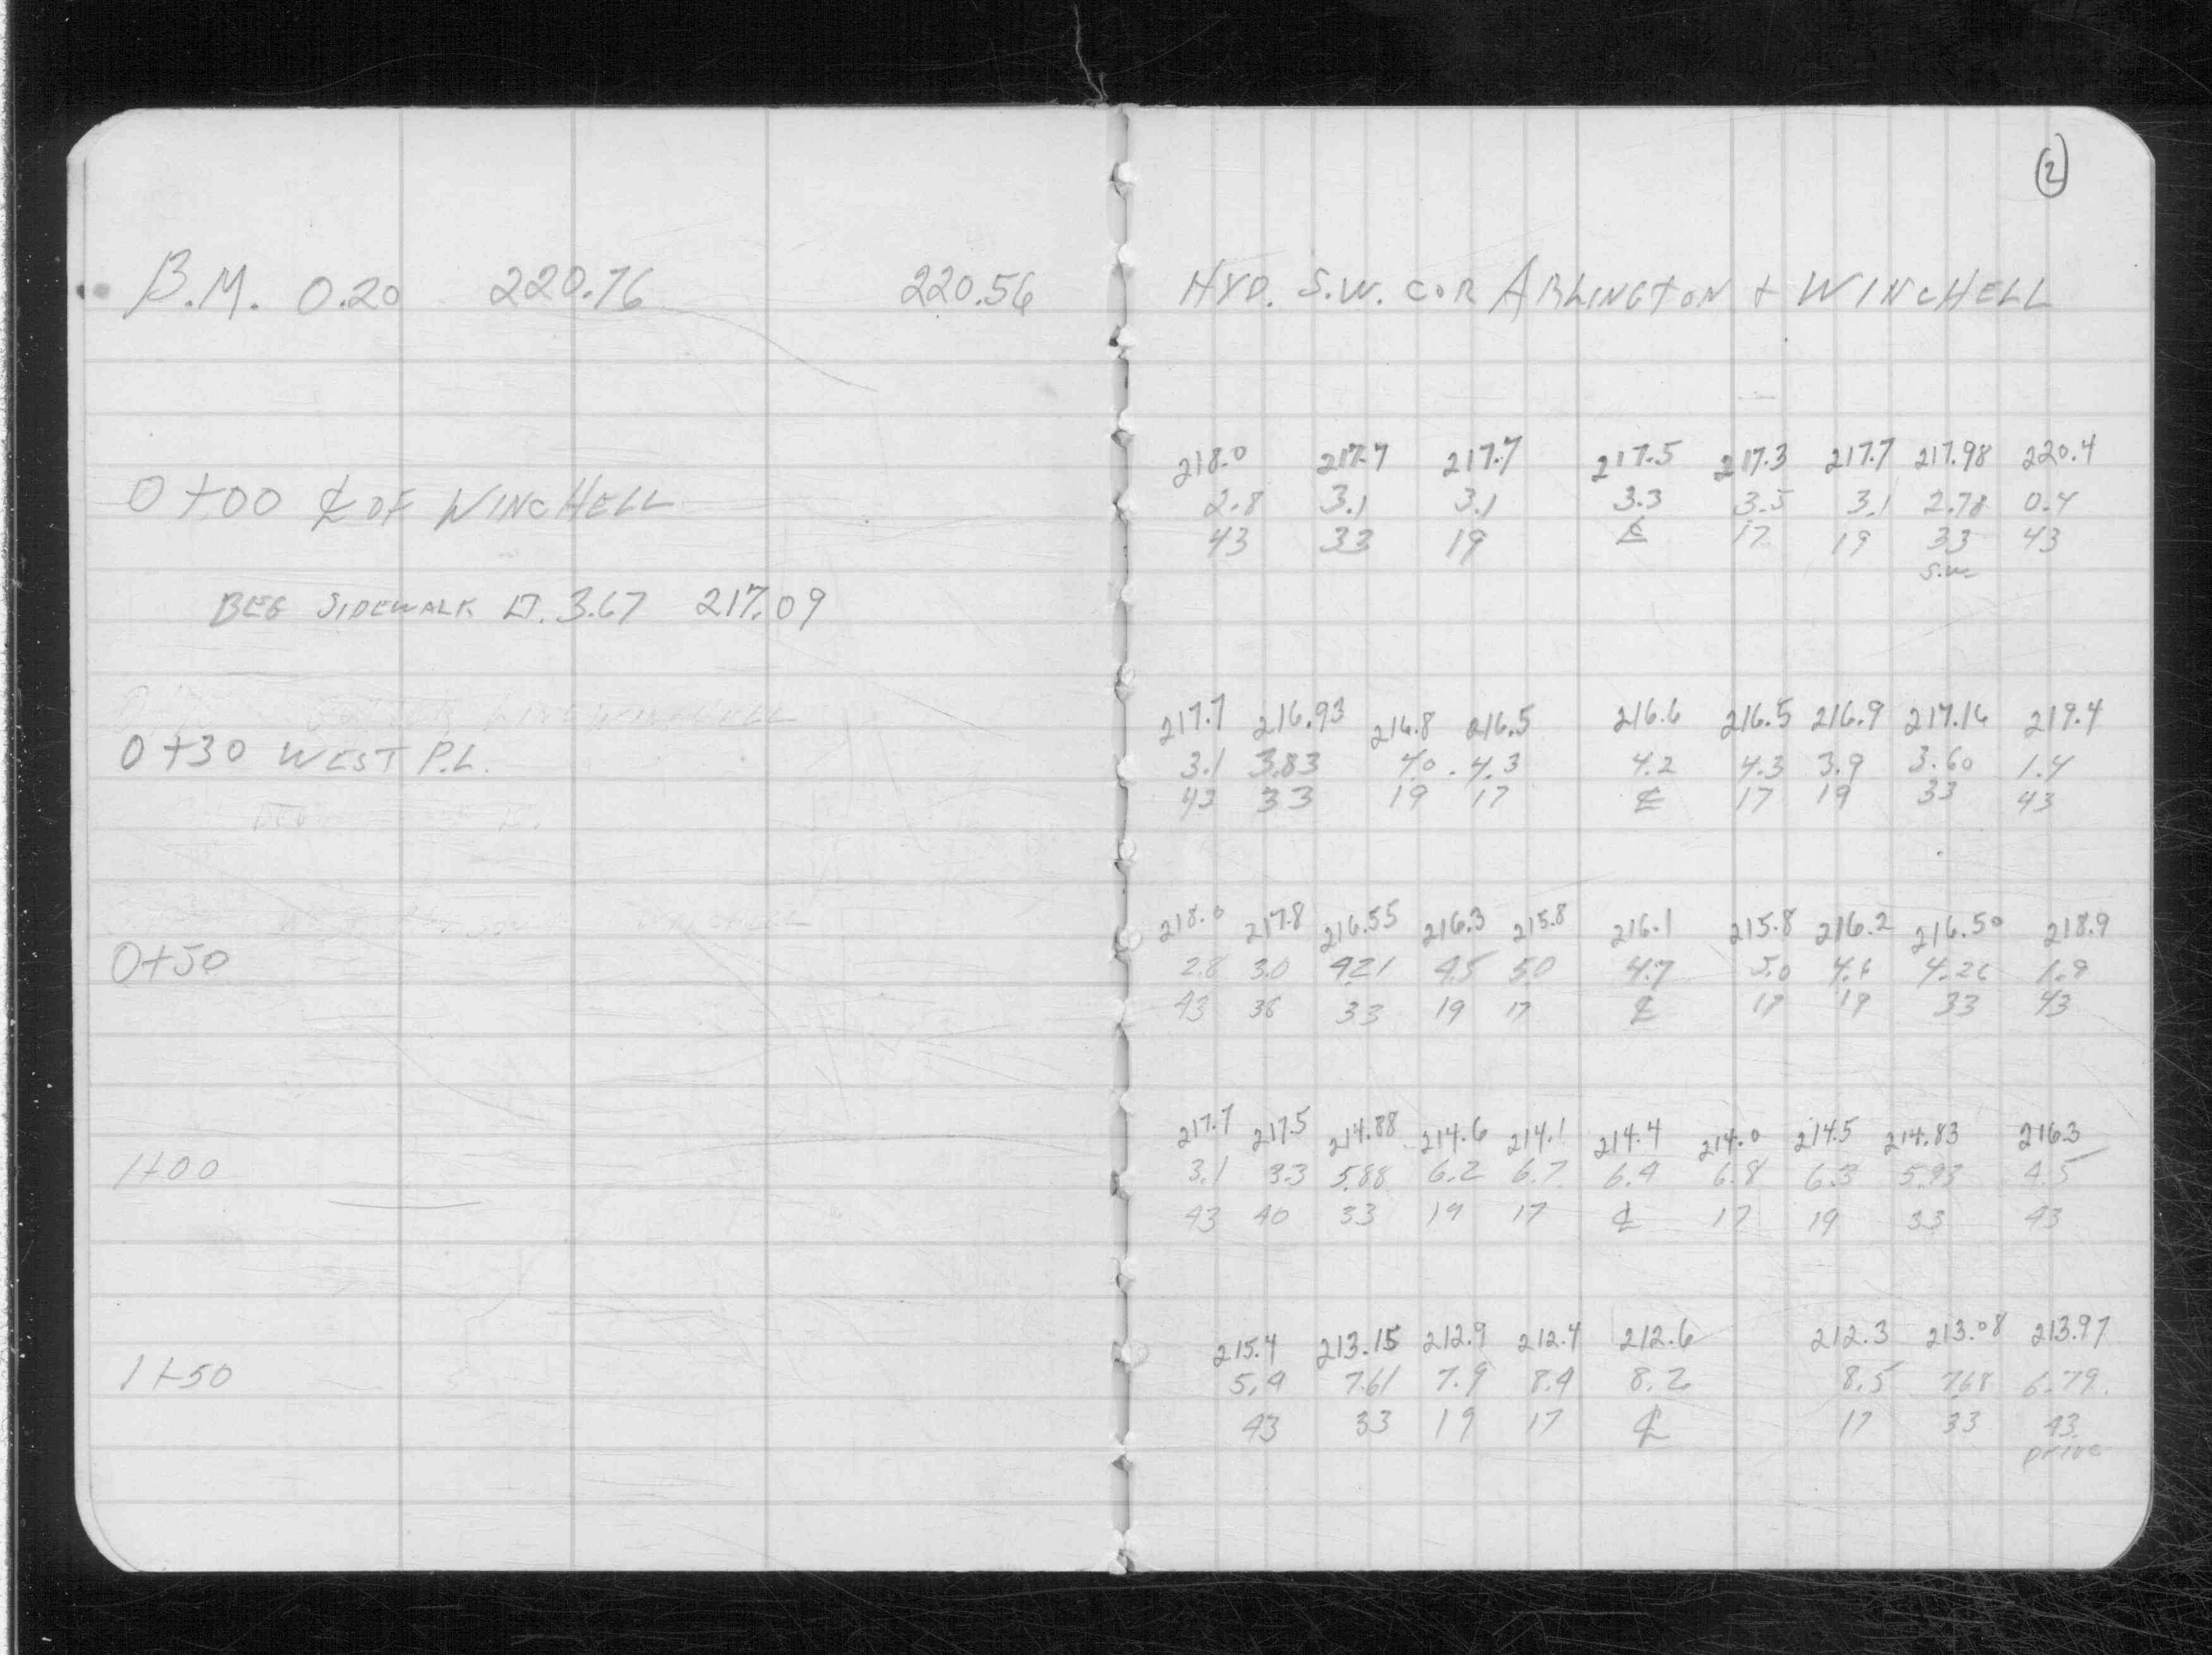 2
B.M. 0.20 220.76 220.56 HYD. S.W. COR ARLINGTON + WINCHELL
218.0 217.7 217.7 217.5 217.3 217.7 217.98 220.4
0+00 ℄ OF WINCHELL 2.8 3.1 3.1 3.3 3.5 3.1 2.78 0.4
43 33 19 ℄ 17 19 33 43
S.W.
BEG SIDEWALK LT. 3.67 217.09
217.7 216.93 216.8 216.5 216.6 216.5 216.9 217.16 219.4
0+30 WEST P.L. 3.1 3.83 4.0 4.3 4.2 4.3 3.9 3.60 1.4
43 33 19 17 ℄ 17 19 33 43
218.0 217.8 216.55 216.3 215.8 216.1 215.8 216.2 216.50 218.9
0+50 2.8 3.0 4.21 4.5 5.0 4.7 5.0 4.6 4.26 1.9
43 36 33 19 17 ℄ 33 43
217.7 217.5 214.88 214.6 214.1 214.4 214.0 214.5 214.83 216.3
1+00 3.1 3.3 5.88 6.2 6.7 6.4 6.8 6.3 5.93 4.5
43 40 33 19 17 ℄ 17 19 33 43
215.4 213.15 212.9 212.4 212.6 212.3 213.08 213.97
1+50 5.4 7.61 7.9 8.4 8.2 8.5 7.68 6.79
43 33 19 17 ℄ 17 33 43
DRIVE